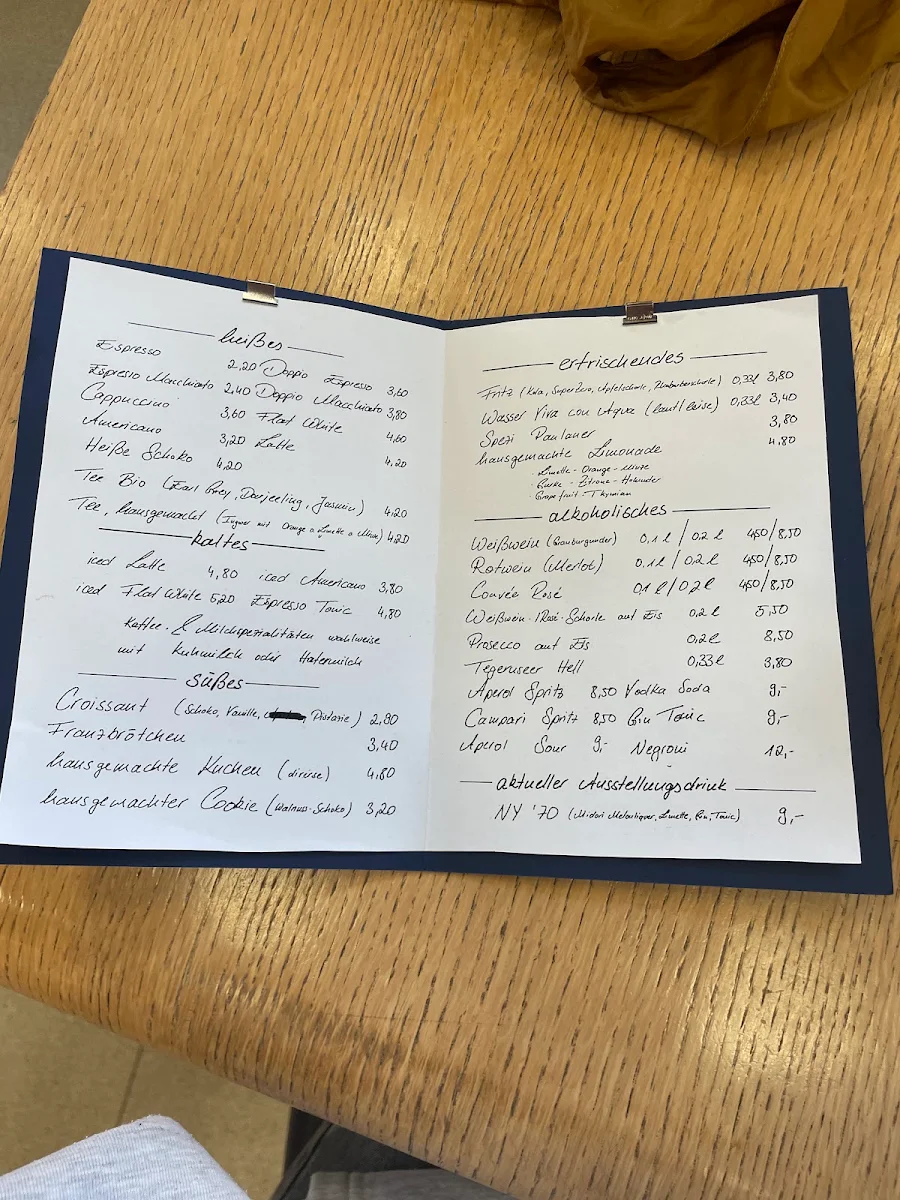 heißes
Espresso 2,20 Doppio Espresso 3,60
Espresso Macchiato 2,40 Doppio Macchiato 3,80
Cappuccino 3,60 Flat White 4,60
Americano 3,20 Latte 4,20
Heiße Schoko 4,20
Tee Bio (Earl Grey, Darjeeling, Jasmin) 4,20
Tee, hausgemacht (Ingwer mit Orange o. Limette o. Minze) 4,20
kaltes
iced Latte 4,80 iced Americano 3,80
iced Flat White 5,20 Espresso Tonic 4,80
Kaffee- & Milchspezialitäten wahlweise
mit Kuhmilch oder Hafermilch
süßes
Croissant (Schoko, Vanille, Pistazie) 2,90
Franzbrötchen 3,40
hausgemachte Kuchen (divirse) 4,80
hausgemachter Cookie (Walnuss-Schoko) 3,20
erfrischendes
Fritz (Kola, SuperZero, Apfelschorle, Rhabarberschorle) 0,33l 3,80
Wasser Viva con Agua (laut/leise) 0,33l 3,40
Spezi Paulaner 3,80
hausgemachte Limonade 4,80
· Limette - Orange - Minze
· Gurke - Zitrone - Holunder
· Grapefruit - Thymian
alkoholisches
Weißwein (Grauburgunder) 0,1 l / 0,2 l 4,50/8,50
Rotwein (Merlot) 0,1 l / 0,2 l 4,50/8,50
Couvée Rosé 0,1 l / 0,2 l 4,50/8,50
Weißwein-/Rosé-Schorle auf Eis 0,2 l 5,50
Prosecco auf Eis 0,2 l 8,50
Tegernseer Hell 0,33 l 3,80
Aperol Spritz 8,50 Vodka Soda 9,-
Campari Spritz 8,50 Gin Tonic 9,-
Aperol Sour 9,- Negroni 12,-
aktueller Ausstellungsdrink
NY '70 (Midori Melonliquer, Limette, Gin, Tonic) 9,-